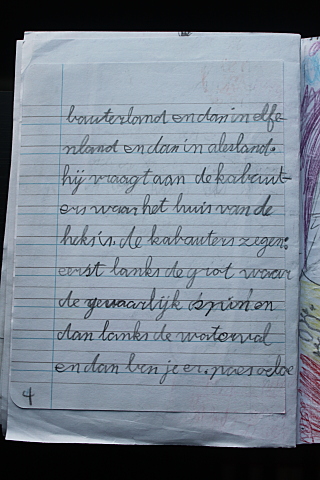 bauterland en dan in elfe
nland en dan in alesland.
hij vraagt aan de kabout-
ers waar het huis van de
heks is. de kabauters zegen:
eerst lanks de grot waar
de gevaarlijk spin en
dan lanks de waterval
en dan ben je er. pas op
4